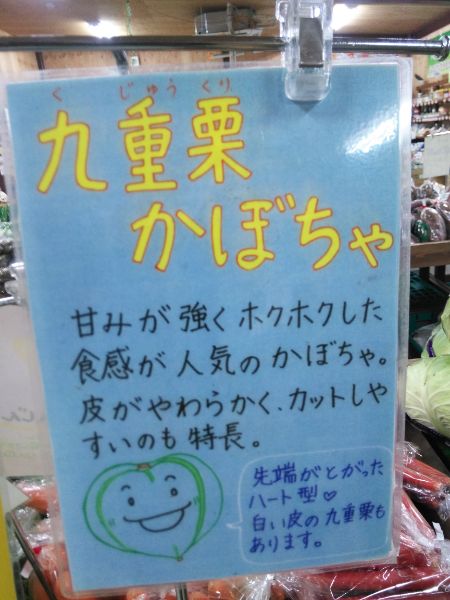 く じゅう くり
九重栗
かぼちゃ
甘みが強くホクホクした
食感が人気のかぼちゃ。
皮がやわらかく、カットしや
すいのも特長。
先端がとがった
ハート型♡
白い皮の九重栗も
あります。